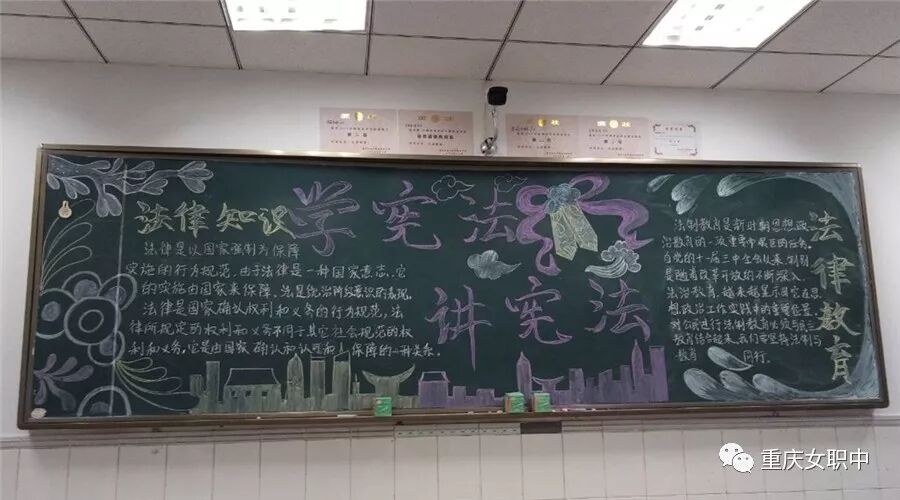 学宪法
讲宪法
法律知识
法律是以国家强制为保障
实施的行为规范,由于法律是一种国家意志,它
的实施由国家来保障,法是统治阶级意识的表现,
法律是国家确认权利和义务的行为规范,法
律所规定的权利和义务不同于其它社会规范的权
利和义务,它是由国家确认和认可和保障的一种关系.
法律教育
法制教育是新时期思想政
治教育的一项重要
自党的十一届三中全会以来,特别
是随着改革开放的不断深入
法治教育,越来越显示出它在思
想政治工作实践中的重要位置,
对公民进行法制教育
教育结合起来,我们要坚持法制与
教育 同行.
重庆女职中